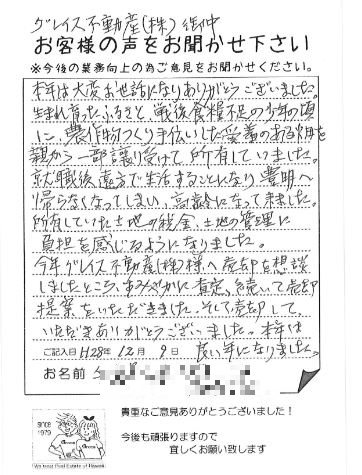 グレイス不動産(株)御中
お客様の声をお聞かせ下さい
※今後の業務向上の為ご意見をお聞かせください。
本年は大変お世話になりありがとうございました。
生まれ育ったふるさと、戦後食糧不足の少年の頃
に、農作物つくり手伝いした愛着のある畑を
親から一部譲り受けて所有していました。
就職後遠方で生活することになり豊明へ
帰らなくなってしまい、高齢になって来ました。
所有していた土地の税金、土地の管理に
負担を感じるようになりました。
今年グレイス不動産(株)様へ売却を想談
しましたところ、すみやかに査定、続いて売却
提案をいただきました。そして売却して
いただきありがとうございました。本年は
ご記入日 H28年 12月 9日 良い年になりました。
お名前
since
1979
貴重なご意見ありがとうございました!
今後も頑張りますので
宜しくお願い致します